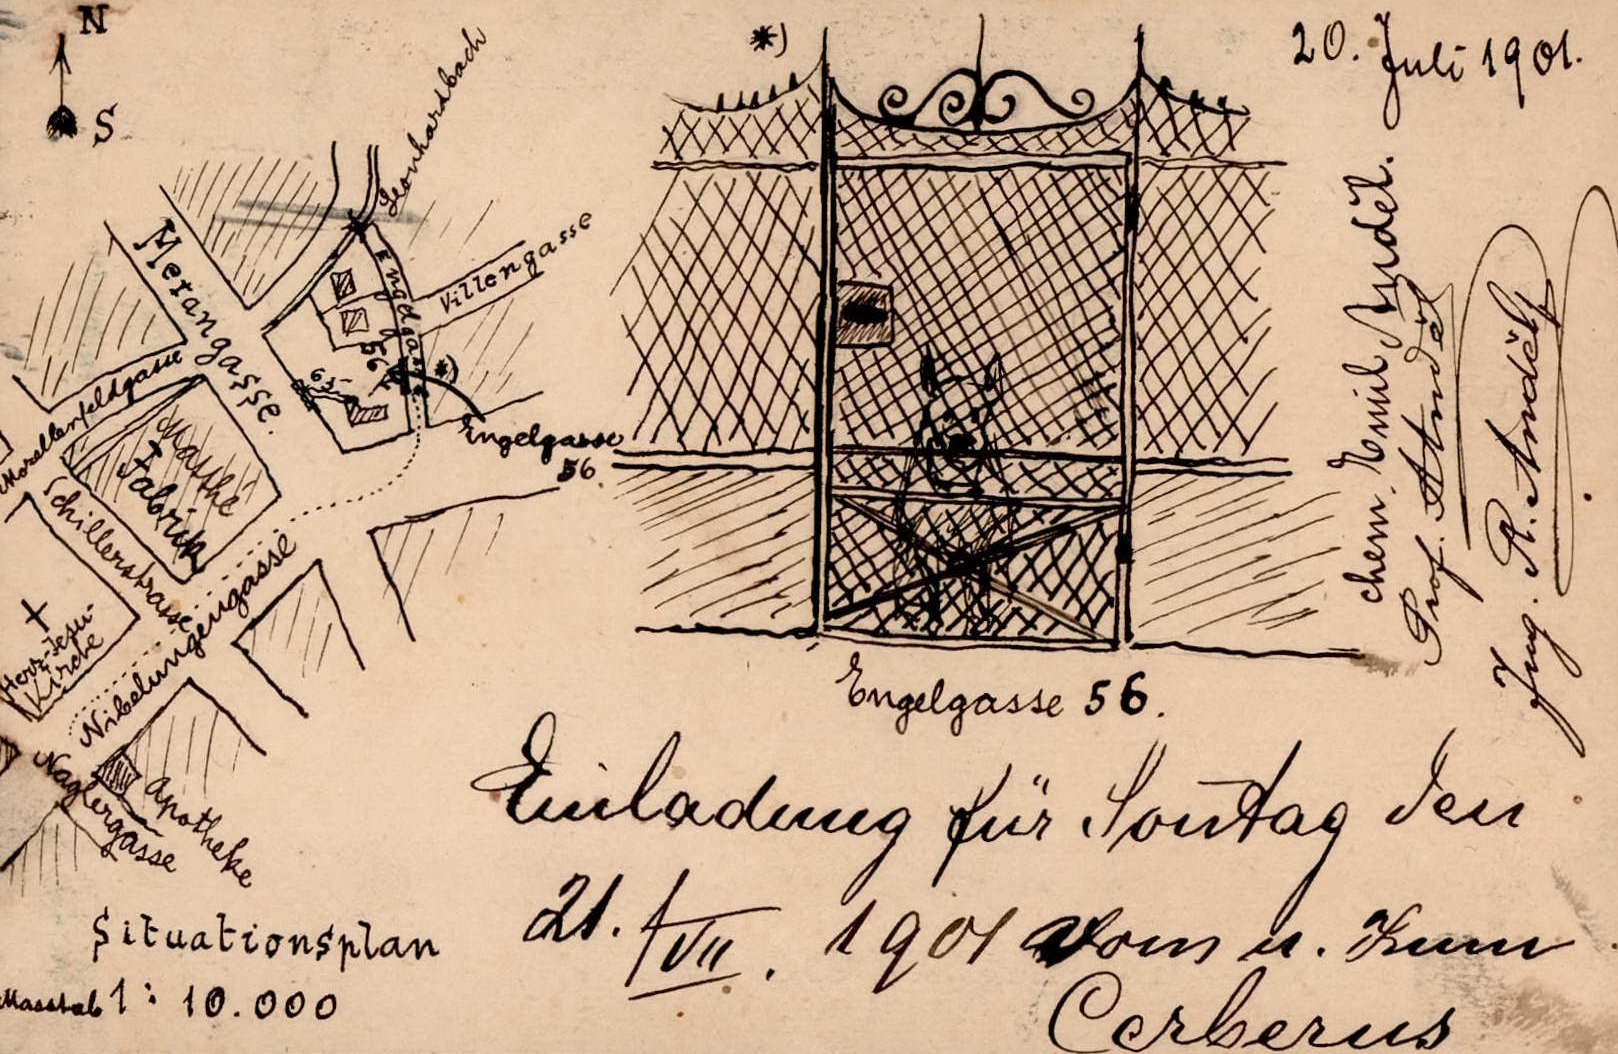 N
S
Leonhardbach
*)
20. Juli 1901.
Merangasse.
Engelgasse
Villengasse
56
*)
65
Engelgasse
56.
Morellenfeldgasse
Masshé
Fabrik
Schillerstrasse
Nibelungengasse
Herz-Jesu-
Kirche
Naglergasse
Apotheke
Situationsplan
Masstab 1 : 10.000
Engelgasse 56.
chem. Emil Anděl.
Prof. Anděl
Ing. R. Anděl
Einladung für Sontag den
21./VII. 1901 vom u. zum
Cerberus